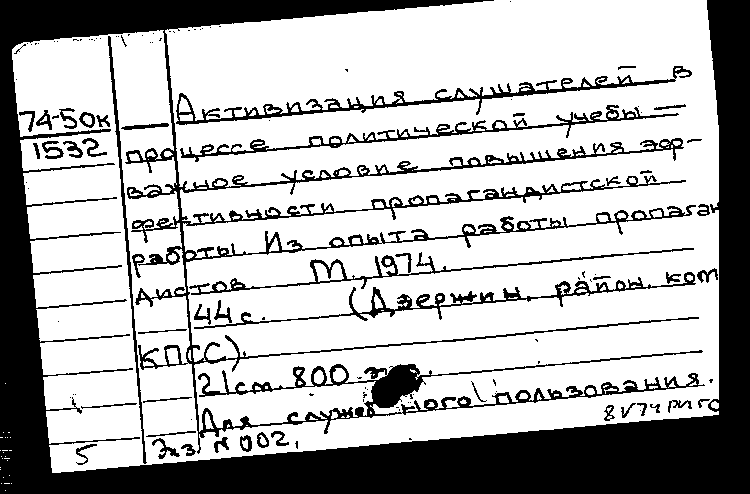 Активизация слушателей в
74-50к
1532
процессе политической учебы —
важное условие повышения эф-
фективности пропагандистской
работы. Из опыта работы пропаган
дистов. М., 1974.
44 с. (Дзержин. район. ком
КПСС).
21 см. 800 экз.
Для служебного пользования.
5 Экз N 002.